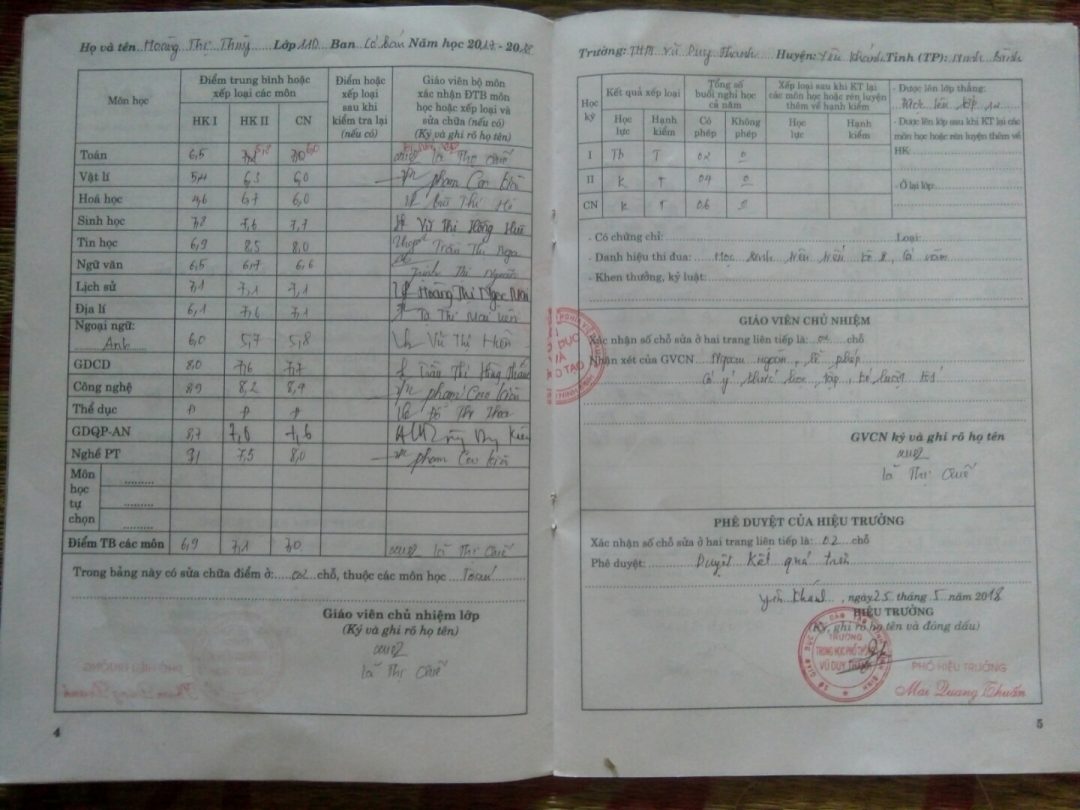 Họ và tên Hoàng Thị Thuỳ Lớp 11D Ban Cơ bản Năm học 2017 - 2018
Môn học
Điểm trung bình hoặc xếp loại các môn
HK I HK II CN
Điểm hoặc xếp loại sau khi kiểm tra lại (nếu có)
Giáo viên bộ môn xác nhận ĐTB môn học hoặc xếp loại và sửa chữa (nếu có) (Ký và ghi rõ họ tên)
Toán 6,5 5,8 6,0 Lã Thị Quế
Vật lí 5,4 6,3 6,0
Hoá học 4,6 6,7 6,0
Sinh học 7,8 7,6 7,7 Vũ Thị Hồng Huê
Tin học 6,9 8,5 8,0 Trần Thị Nga
Ngữ văn 6,5 6,7 6,6
Lịch sử 7,1 7,1 7,1 Hoàng Thị Ngọc
Địa lí 6,1 7,6 7,1 Tạ Thị
Ngoại ngữ:
Anh 6,0 5,7 5,8 Vũ Thị Hiền
GDCD 8,0 7,6 7,7 Trần Thị Hồng
Công nghệ 8,9 8,2 8,4
Thể dục Đ Đ Đ Đỗ Thị Hoa
GDQP-AN 8,7 7,0 7,6
Nghề PT 9,1 7,5 8,0
Môn học tự chọn
Điểm TB các môn 6,9 7,1 7,0 Lã Thị Quế
Trong bảng này có sửa chữa điểm ở: 02 chỗ, thuộc các môn học Toán
Giáo viên chủ nhiệm lớp
(Ký và ghi rõ họ tên)
Lã Thị Quế
PHÓ HIỆU TRƯỞNG
4
Trường: THPT Vũ Duy Thanh Huyện: Yên Khánh Tỉnh (TP): Ninh Bình
Học kỳ
Kết quả xếp loại
Học lực Hạnh kiểm
Tổng số buổi nghỉ học cả năm
Có phép Không phép
Xếp loại sau khi KT lại các môn học hoặc rèn luyện thêm về hạnh kiểm
Học lực Hạnh kiểm
I Tb T 02 0
II K T 04 0
CN K T 06 0
- Được lên lớp thẳng:
Được lên lớp 12
- Được lên lớp sau khi KT lại các môn học hoặc rèn luyện thêm về HK:
- Ở lại lớp:
- Có chứng chỉ: Loại:
- Danh hiệu thi đua: Học sinh tiên tiến kỳ 2, cả năm
- Khen thưởng, kỷ luật:
GIÁO VIÊN CHỦ NHIỆM
Xác nhận số chỗ sửa ở hai trang liên tiếp là: 02 chỗ
Nhận xét của GVCN Ngoan ngoãn, lễ phép
Có ý thức học tập, kỉ luật tốt
GVCN ký và ghi rõ họ tên
Lã Thị Quế
PHÊ DUYỆT CỦA HIỆU TRƯỞNG
Xác nhận số chỗ sửa ở hai trang liên tiếp là: 02 chỗ
Phê duyệt: Duyệt kết quả trên
Yên Khánh, ngày 25 tháng 5 năm 2018
HIỆU TRƯỞNG
(Ký, ghi rõ họ tên và đóng dấu)
TRƯỜNG
TRUNG HỌC PHỔ THÔNG
VŨ DUY THANH
PHÓ HIỆU TRƯỞNG
Mai Quang Thuấn
5